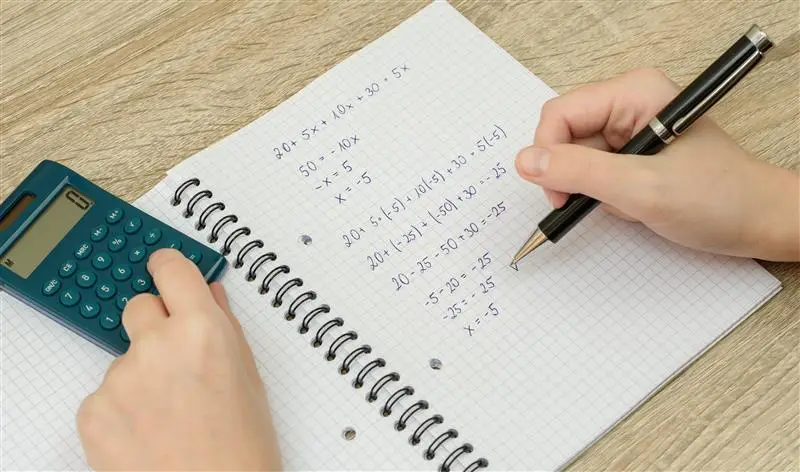 20 + 5x + 10x + 30 = 5x
50 = -10x
-x = 5
x = -5
20 + 5·(-5) + 10(-5) + 30 = 5(-5)
20 + (-25) + (-50) + 30 = -25
20 - 25 - 50 + 30 = -25
-5 - 20 = -25
-25 = -25
x = -5
M
M+
M-
÷
MRC
%
CE
ON/C
9
8
7
6
5
3
2